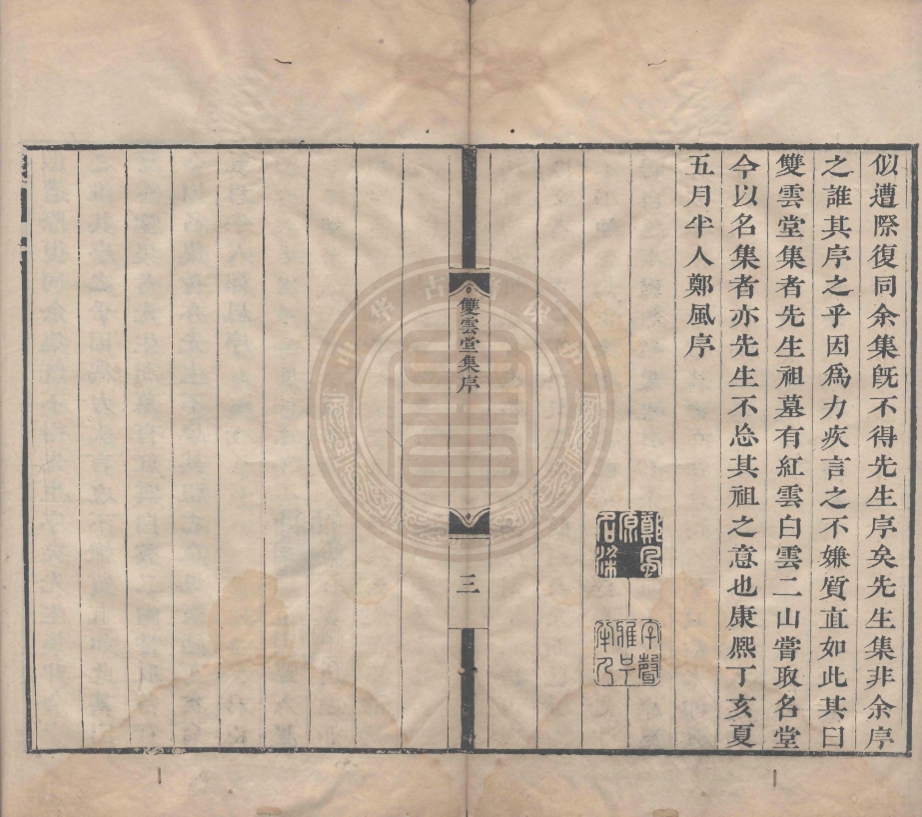 似遭際復同余集既不得先生序矣先生集非余序
之誰其序之乎因爲力疾言之不嫌質直如此其曰
雙雲堂集者先生祖墓有紅雲白雲二山嘗取名堂
今以名集者亦先生不忘其祖之意也康熙丁亥夏
五月半人鄭風序
雙雲堂集序
三